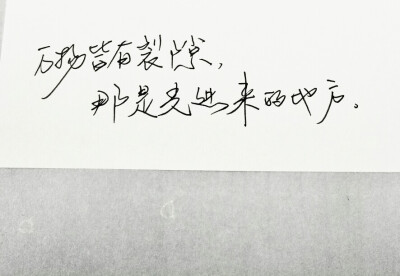 万物皆有裂隙，
那是光进来的地方。